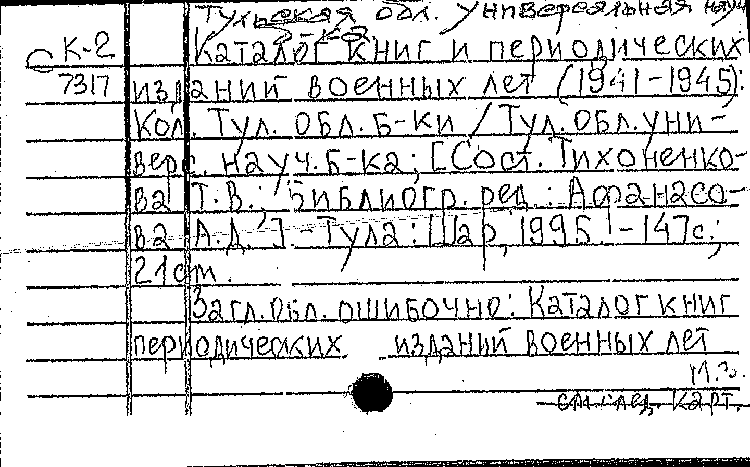 Тульская обл. универсальная науч
б-ка
С К-2
7317
Каталог книг и периодических
изданий военных лет (1941-1945):
Кол. Тул. обл. б-ки / Тул. обл. уни-
верс. науч. б-ка; [Сост. Тихоненко-
ва Т.В.; Библиогр. ред.: Афанасо-
ва А.Д.]. - Тула: Шар, 1995. - 147с.;
21см.
Загл. обл. ошибочно: Каталог книг
периодических изданий военных лет
см. след. карт.